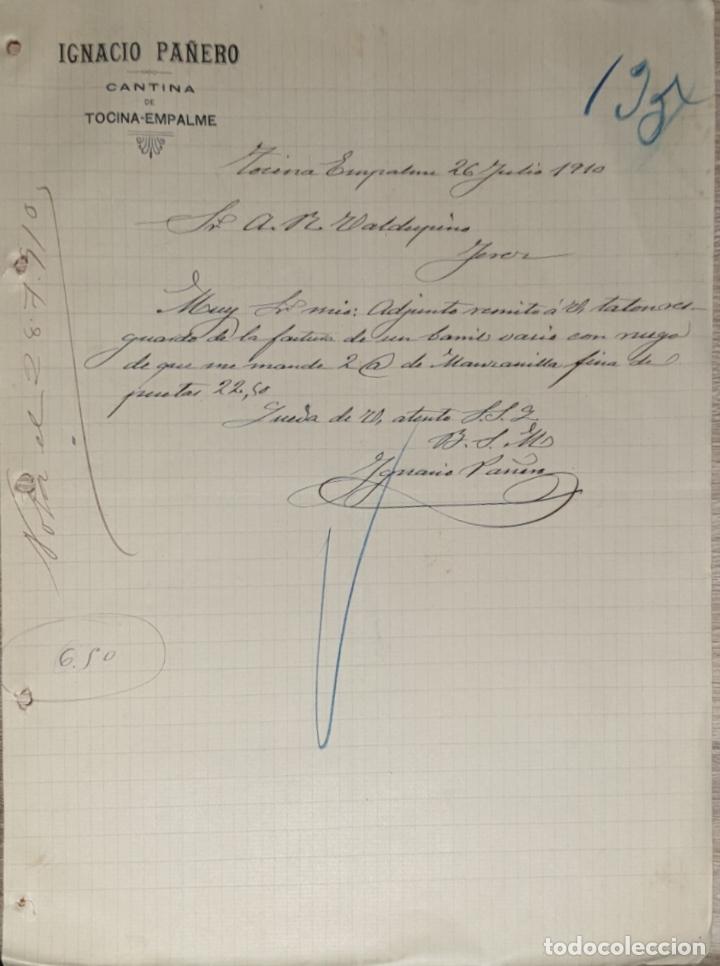 IGNACIO PAÑERO
CANTINA
DE
TOCINA-EMPALME
Tocina Empalme 26 Julio 1910
Sr A. R. Valdespino
Jerez
Muy Sr mio: Adjunto remito á V, talon res-
guardo de la factura de un barril vasio con ruego
de que me mande 2 @ de Manzanilla fina de
pesetas 22,50
Queda de V, atento S. S. Q
B. S. M
Ignacio Pañero
el 28.7.910
6.50
todocoleccion